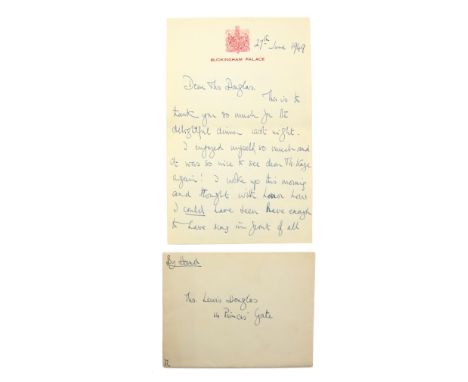 27th June 1949
BUCKINGHAM PALACE
Dear Mrs Douglas.
This is to
thank you so much for the
delightful dinner last night.
I enjoyed myself so much and
it was so nice to see dear Mr
again! I woke up this morning
and thought with horror how
I could have been brave enough
to have sung in front of all
By Hand
Mrs. Lewis Douglas
14 Princes' Gate